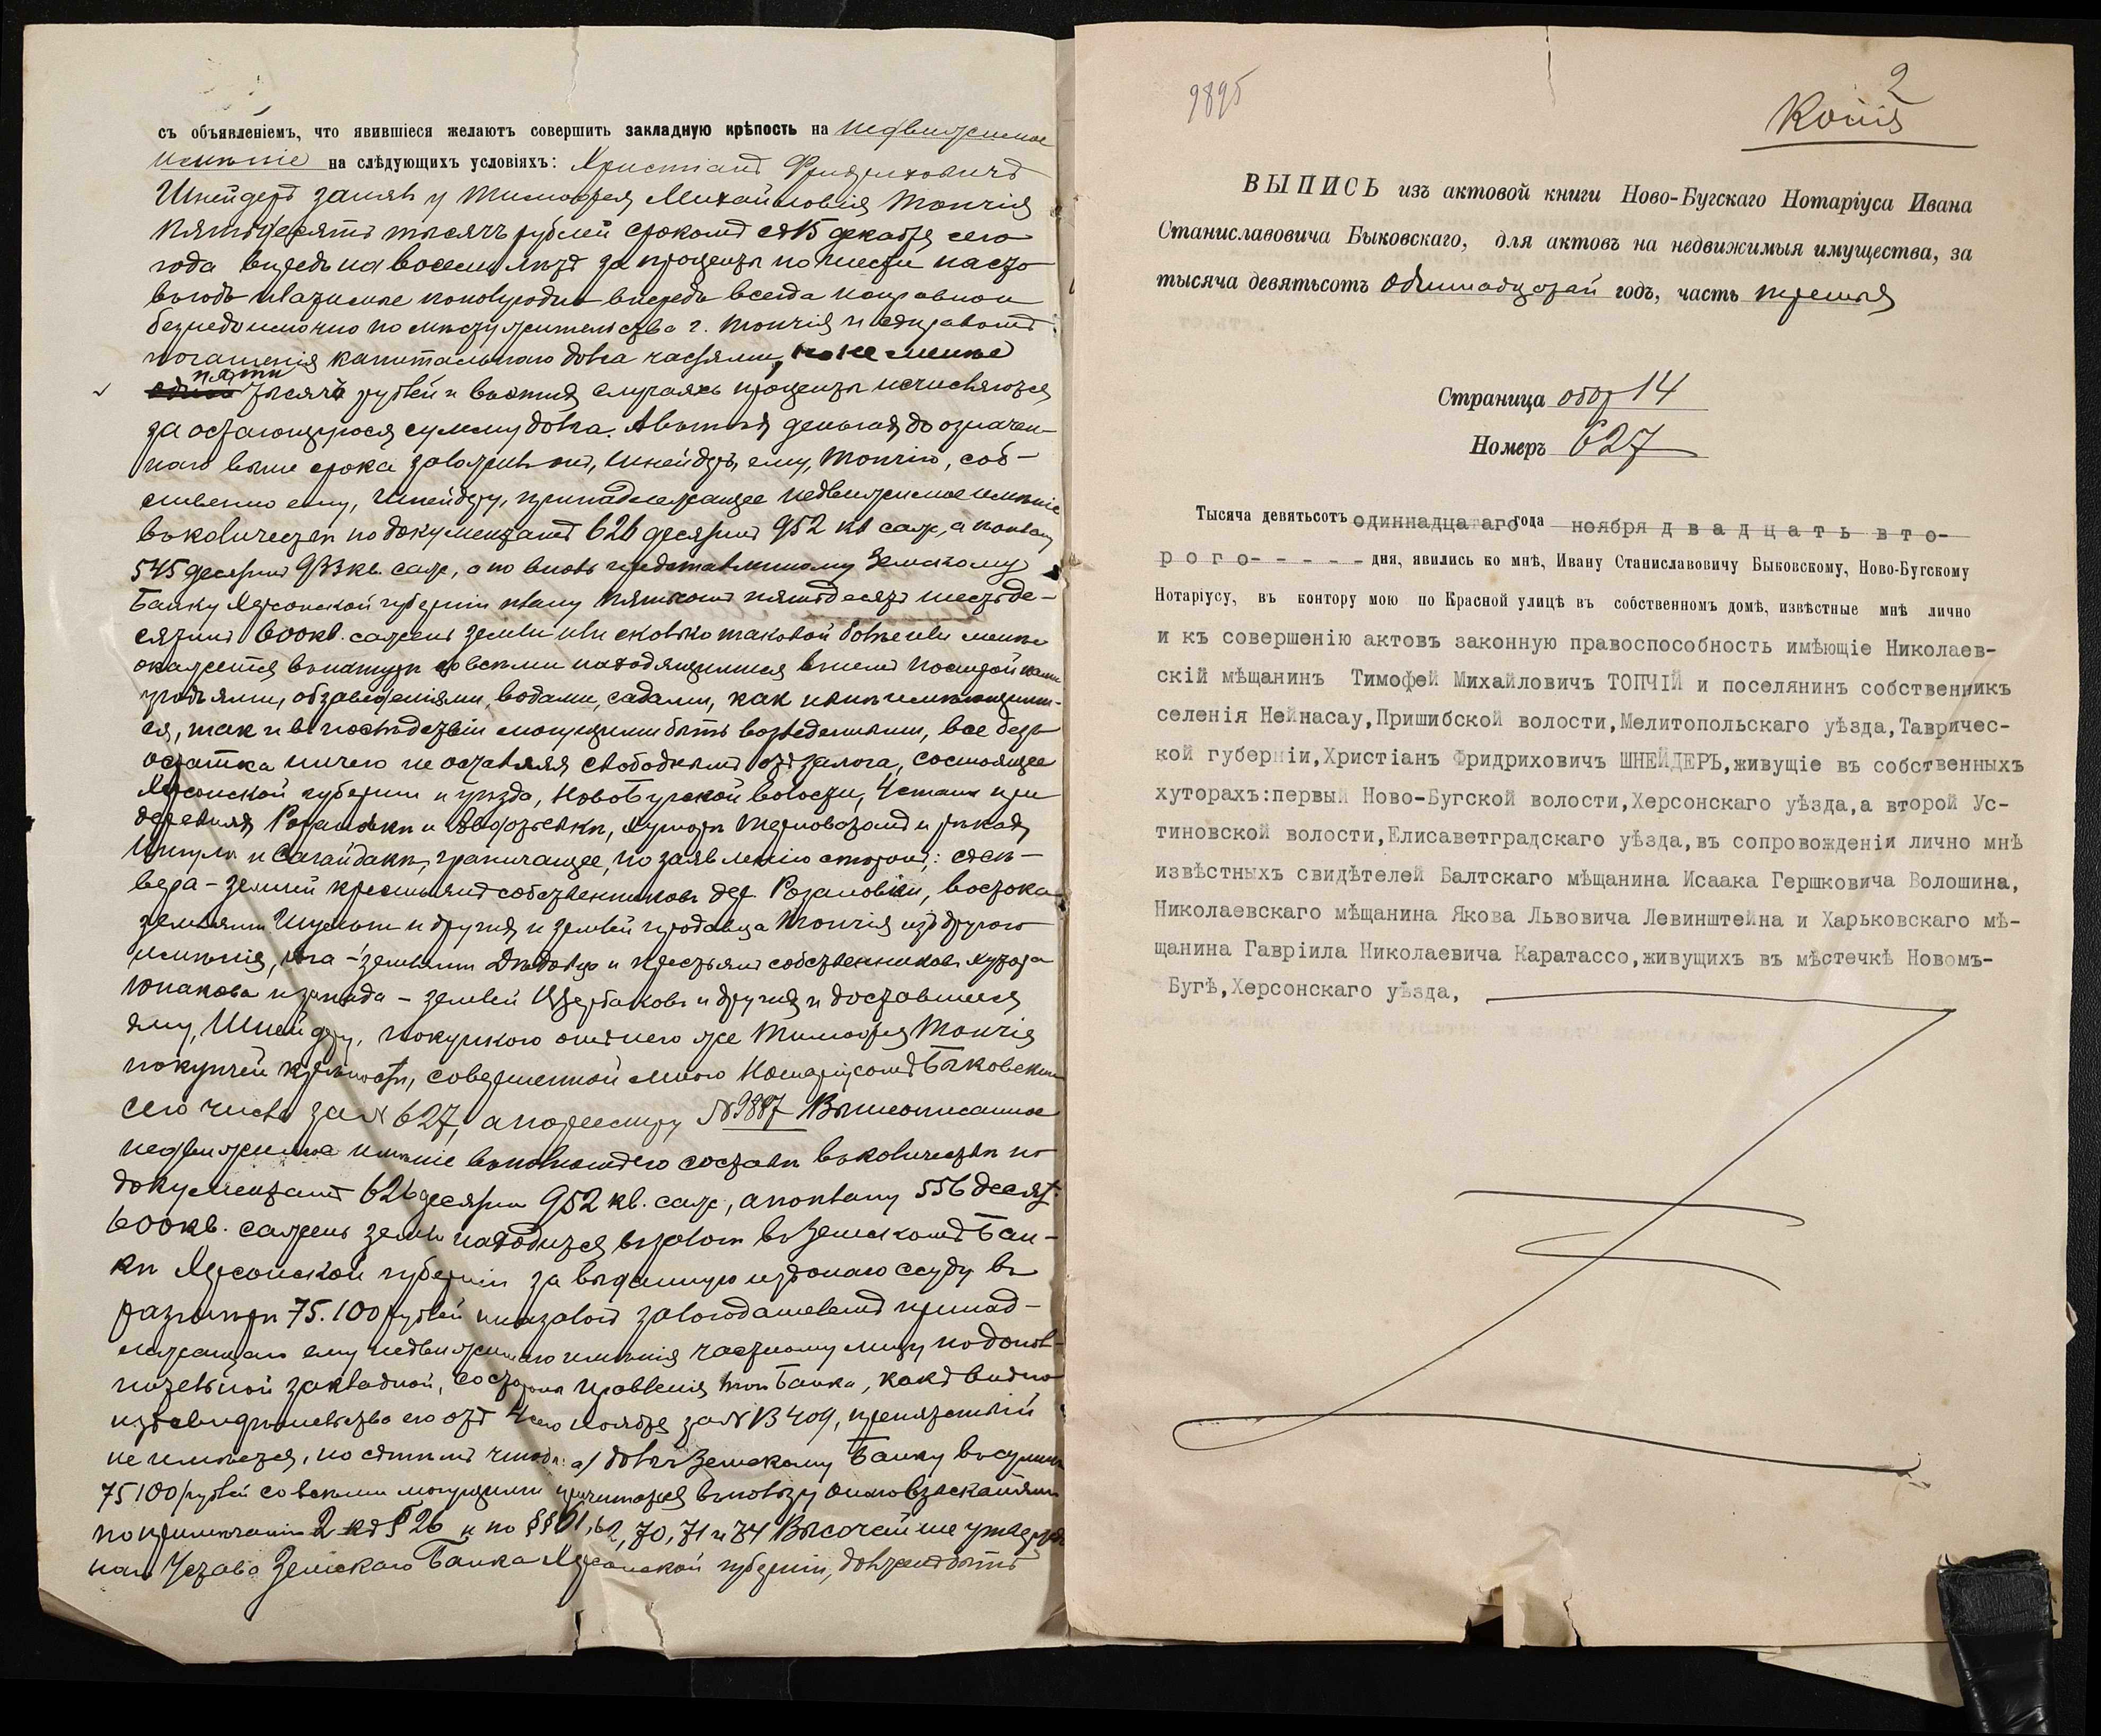 съ объявленіемъ, что явившіеся желаютъ совершить закладную крѣпость на недвижимое
имѣніе на слѣдующихъ условіяхъ: Христіанъ Фридриховичъ
Шнейдеръ занялъ у Тимофея Михайловича Топчія
пятьдесятъ тысячъ рублей срокомъ съ 15 декабря сего
года впредь на восемь лѣтъ за проценты по шести на сто
въ годъ платимые полугодно впредь всегда исправно и
безнедоимочно по мѣсту жительства г. Топчія и съ правомъ
погашенія капитальнаго долга частями, но не менѣе
пяти тысячъ рублей и въ этихъ случаяхъ проценты исчисляются
на остающуюся сумму долга. А въ тѣхъ деньгахъ до означен-
наго выше срока заложилъ онъ, Шнейдеръ, ему, Топчію, соб-
ственно ему, Шнейдеру, принадлежащее недвижимое имѣніе
въ количествѣ по документамъ 626 десятинъ 952 кв саж, а по плану
545 десятинъ 933 кв. саж, а по вновь представленному Земскому
Банку Херсонской губерніи плану пятьсотъ пятьдесятъ шесть де-
сятинъ 600 кв. сажень земли или сколько таковой болѣе или менѣе
окажется въ натурѣ со всѣми находящимися въ немъ постройками
угодьями, обзаведеніями, водами, садами, какъ нынѣ имѣющими-
ся, такъ и впослѣдствіи могущими быть возведенными, все безъ
остатка ничего не оставляя свободнымъ отъ залога, состоящее
Херсонской губерніи и уѣзда, Ново Бугской волости, 4 стана при
деревняхъ Розановкѣ и
Ингулѣ и Сагайдакѣ, граничащее, по заявленію сторонъ: сѣ-
вера – землей крестьянъ собственниковъ дер. Розановки, востока
землями и другихъ и землей продавца Топчія изъ другого
имѣнія, юга – землями и крестьянъ собственниковъ хутора
Юпакова и запада – землей Щербаковъ и другихъ и доставшееся
ему, Шнейдеру, покупкою отъ него же Тимофея Топчія
по купчей крѣпости, совершенной мною Нотаріусомъ Быковскимъ
сего числа за № 627, а по реестру № 9887 Вышеописанное
недвижимое имѣніе въ полномъ его составѣ въ количествѣ по
документамъ 626 десятин 952 кв. саж, а по плану 556 десят.
600 кв. сажень земли находится въ залогѣ въ Земскомъ Бан-
кѣ Херсонской губерніи за выданную изъ онаго ссуду въ
размѣрѣ 75.100 рублей и на залогъ залогодателемъ принад-
лежащаго ему недвижимаго имѣнія частному лицу по допол-
нительной закладной, со стороны Правленія того Банка, какъ видно
изъ свидѣтельства его отъ 4 сего ноября за № 13409, препятствій
не имѣется, но съ тѣмъ чтобы: а) долгъ Земскому Банку въ суммѣ
75100 рублей со всѣми могущими причитаться въ пользу онаго взысканіями
по примѣчанію 2 къ § 26 и по §§ 61, 62, 70, 71 и 74 Высочайше утвержден-
наго Устава Земскаго Банка Херсонской губерніи, долженъ быть
9895
2
Копія
ВЫПИСЬ изъ актовой книги Ново-Бугскаго Нотаріуса Ивана
Станиславовича Быковскаго, для актовъ на недвижимыя имущества, за
тысяча девятьсотъ одиннадцатый годъ, часть третья
Страница обор 14
Номеръ 627
Тысяча девятьсотъ одиннадцатаго года ноября двадцать вто-
рого- - - - - дня, явились ко мнѣ, Ивану Станиславовичу Быковскому, Ново-Бугскому
Нотаріусу, въ контору мою по Красной улицѣ въ собственномъ домѣ, извѣстные мнѣ лично
и къ совершенію актовъ законную правоспособность имѣющіе Николаев-
скій мѣщанинъ Тимофей Михайловичъ ТОПЧІЙ и поселянинъ собственникъ
селенія Нейнасау,Пришибской волости,Мелитопольскаго уѣзда,Тавричес-
кой губерніи,Христіанъ Фридриховичъ ШНЕЙДЕРЪ,живущіе въ собственныхъ
хуторахъ:первый Ново-Бугской волости,Херсонскаго уѣзда,а второй Ус-
тиновской волости,Елисаветградскаго уѣзда,въ сопровожденіи лично мнѣ
извѣстныхъ свидѣтелей Балтскаго мѣщанина Исаака Гершковича Волошина,
Николаевскаго мѣщанина Якова Львовича Левинштейна и Харьковскаго мѣ-
щанина Гавріила Николаевича Каратассо,живущихъ въ мѣстечкѣ Новомъ-
Бугѣ,Херсонскаго уѣзда,